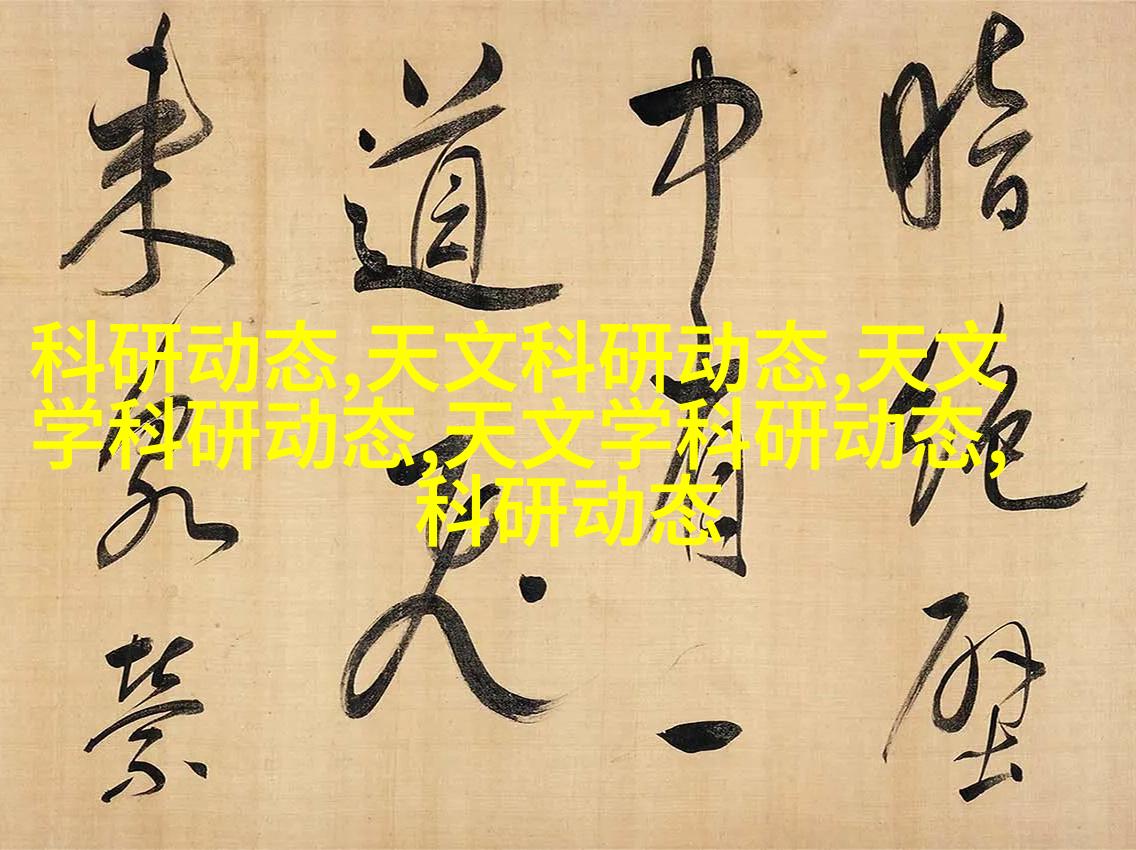 暗絕壁
中有一
道飛
来泉縈
科研动态,天文科研动态,天文
学科研动态,天文学科研动态,
科研动态